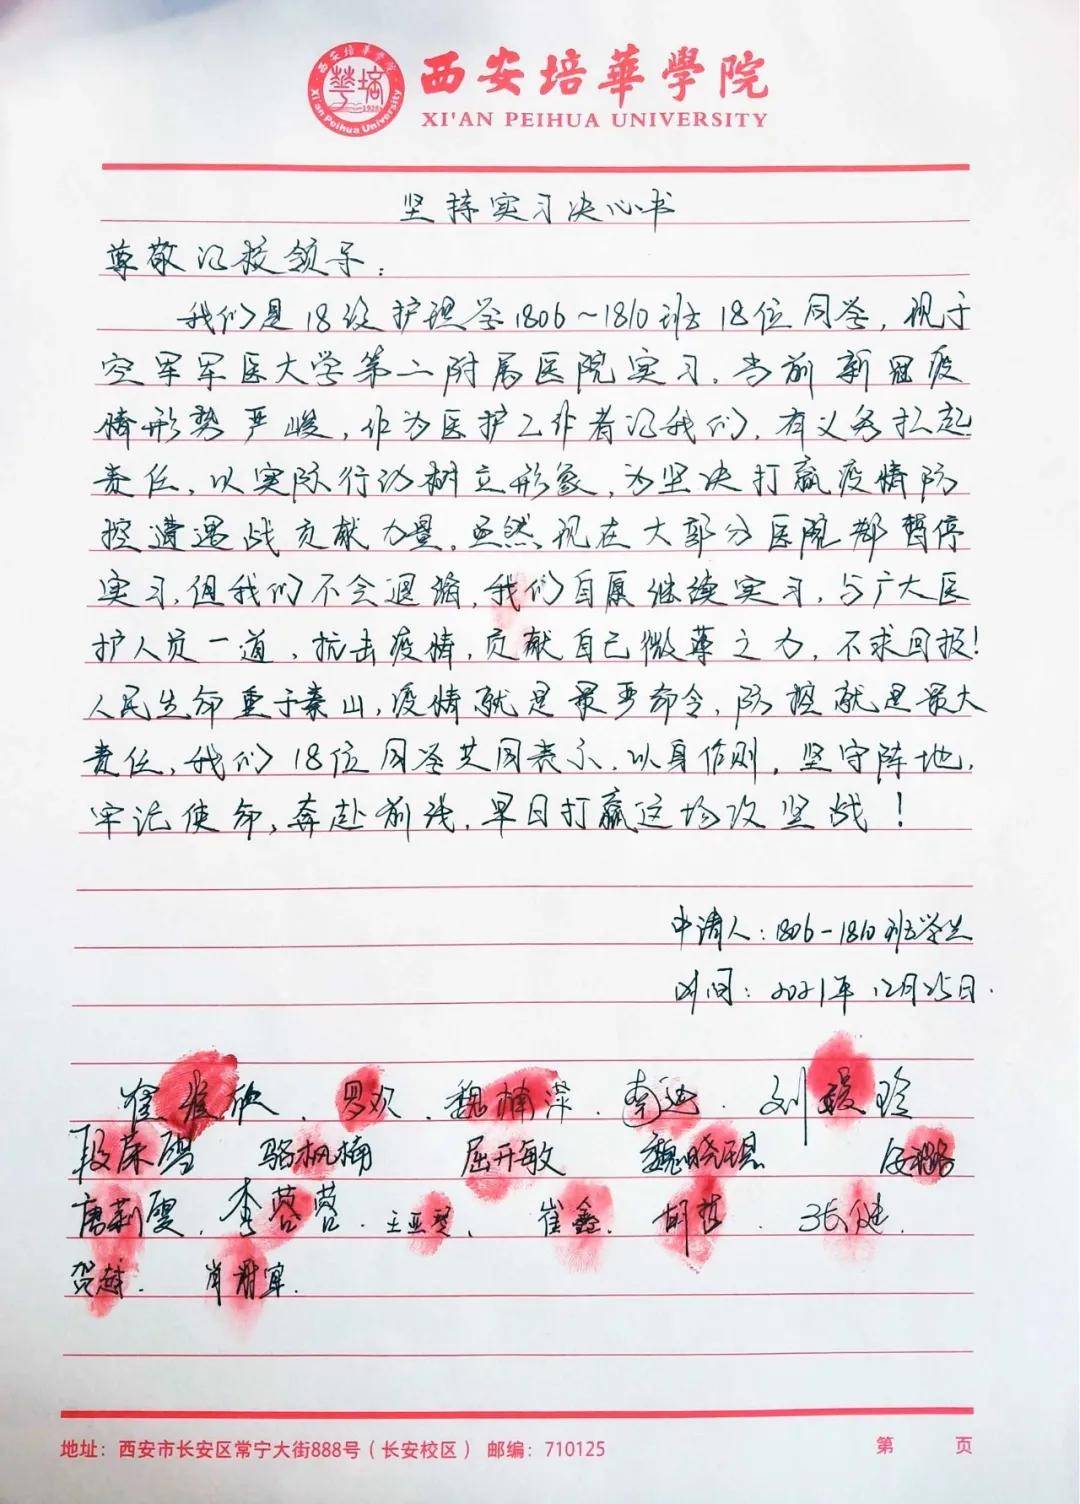 西安培華學院
XI'AN PEIHUA UNIVERSITY
西安培华学院
Xi'an Peihua University
1928
坚持实习决心书
尊敬的校领导：
我们是18级护理学1806~1810班18位同学，现于
空军军医大学第二附属医院实习。当前新冠疫
情形势严峻，作为医护工作者的我们，有义务扛起
责任，以实际行动树立形象，为坚决打赢疫情防
控遭遇战贡献力量。虽然现在大部分医院都暂停
实习，但我们不会退缩，我们自愿继续实习，与广大医
护人员一道，抗击疫情，贡献自己微薄之力，不求回报！
人民生命重于泰山，疫情就是最严命令，防控就是最大
责任，我们18位同学共同表示，以身作则，坚守阵地，
牢记使命，奔赴前线，早日打赢这场攻坚战！
申请人：1806-1810班学生
时间：2021年12月25日.
罗欢. 魏楠 南 刘媛玲
段荣 骆枫楠 屈开敏 魏晓 任
唐莉雯. 李蓉蓉. 王亚琴. 崔鑫. 胡哲. 张健.
贺越. 肖
地址：西安市长安区常宁大街888号（长安校区） 邮编：710125 第 页